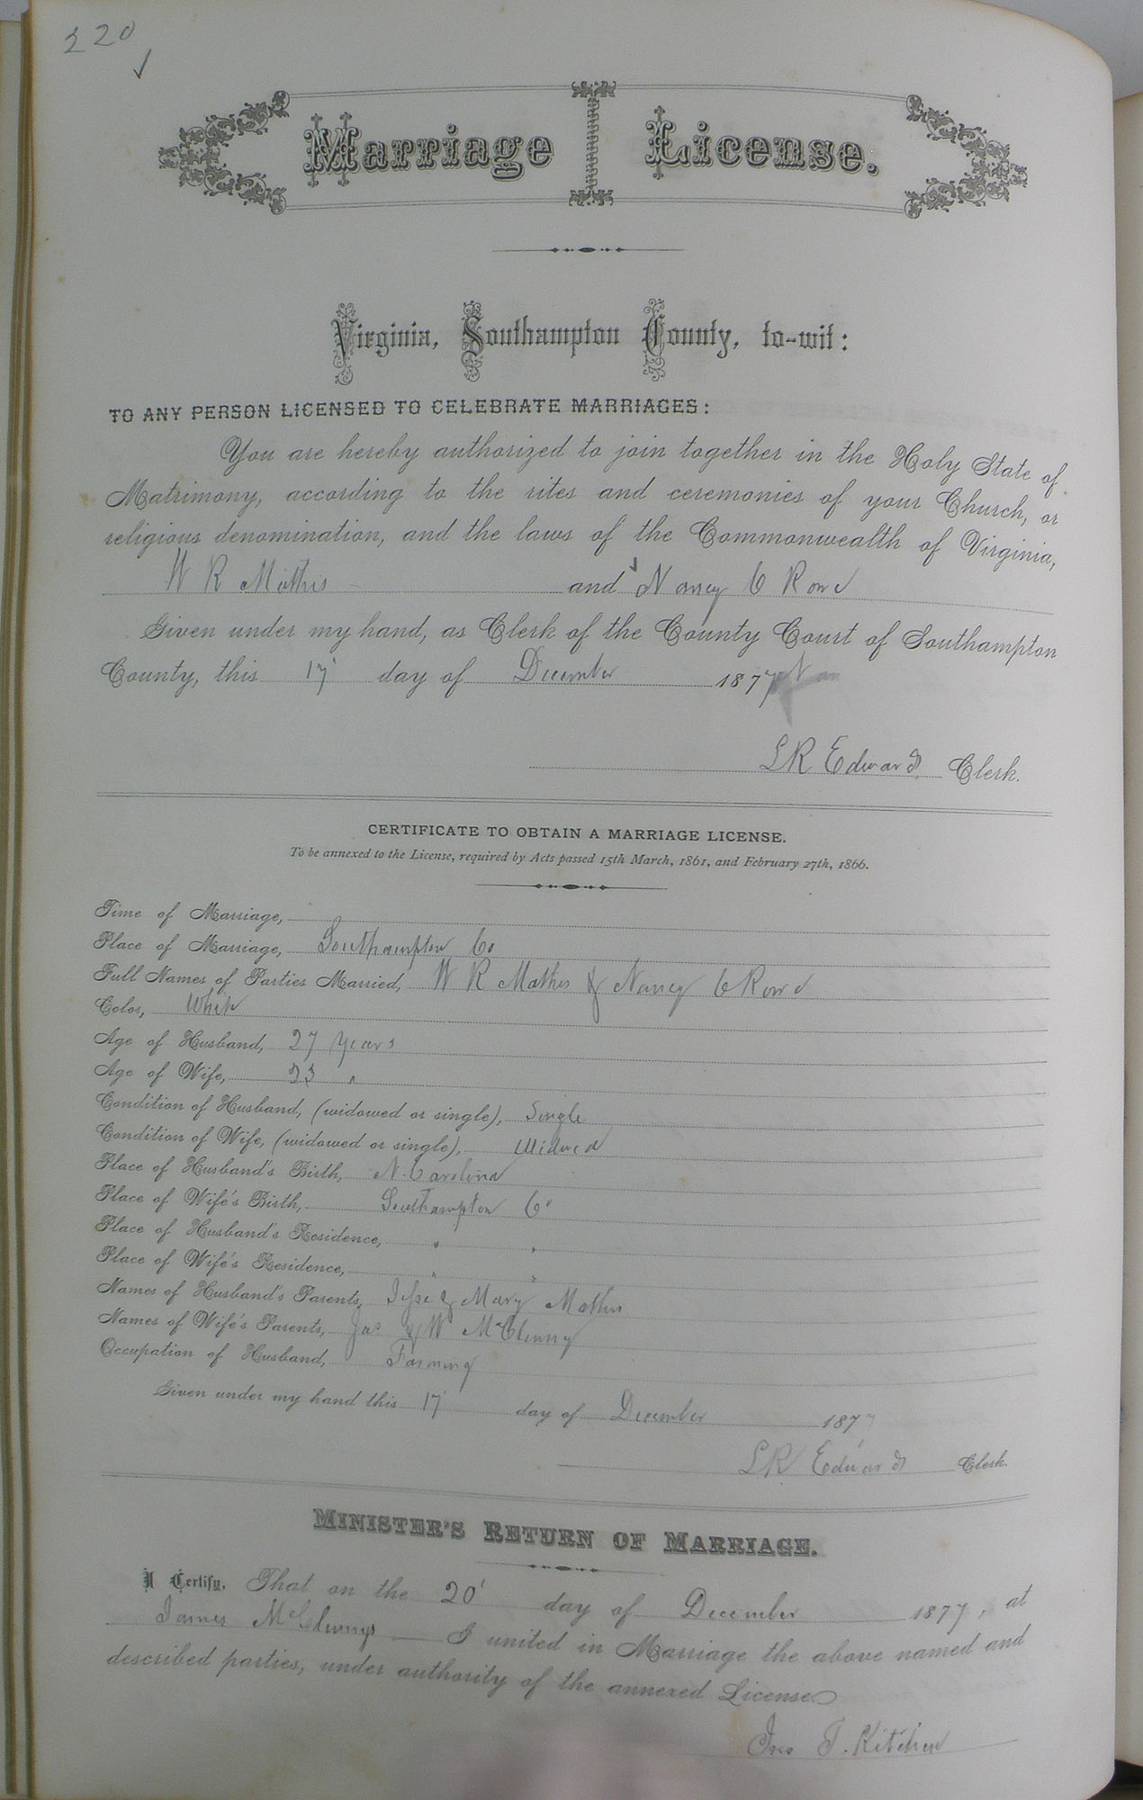 220
Marriage License.
Virginia, Southampton County, to-wit:
TO ANY PERSON LICENSED TO CELEBRATE MARRIAGES:
You are hereby authorized to join together in the Holy State of
Matrimony, according to the rites and ceremonies of your Church, or
religious denomination, and the laws of the Commonwealth of Virginia,
W R Mathis and Nancy C Rowe
Given under my hand, as Clerk of the County Court of Southampton
County, this 17 day of December 1877
L R Edwards Clerk.
CERTIFICATE TO OBTAIN A MARRIAGE LICENSE.
To be annexed to the License, required by Acts passed 15th March, 1861, and February 27th, 1866.
Time of Marriage,
Place of Marriage, Southampton Co
Full Names of Parties Married, W R Mathis & Nancy C Rowe
Color, White
Age of Husband, 27 Years
Age of Wife, 23 "
Condition of Husband, (widowed or single), Single
Condition of Wife, (widowed or single), Widowed
Place of Husband's Birth, N. Carolina
Place of Wife's Birth, Southampton Co
Place of Husband's Residence, " "
Place of Wife's Residence, " "
Names of Husband's Parents, Jesse & Mary Mathis
Names of Wife's Parents, Jas & W McClenny
Occupation of Husband, Farming
Given under my hand this 17 day of December 1877
L R Edwards Clerk.
MINISTER'S RETURN OF MARRIAGE.
I Certify, That on the 20 day of December 1877, at
James McClennys I united in Marriage the above named and
described parties, under authority of the annexed License
Jno T. Kitchen